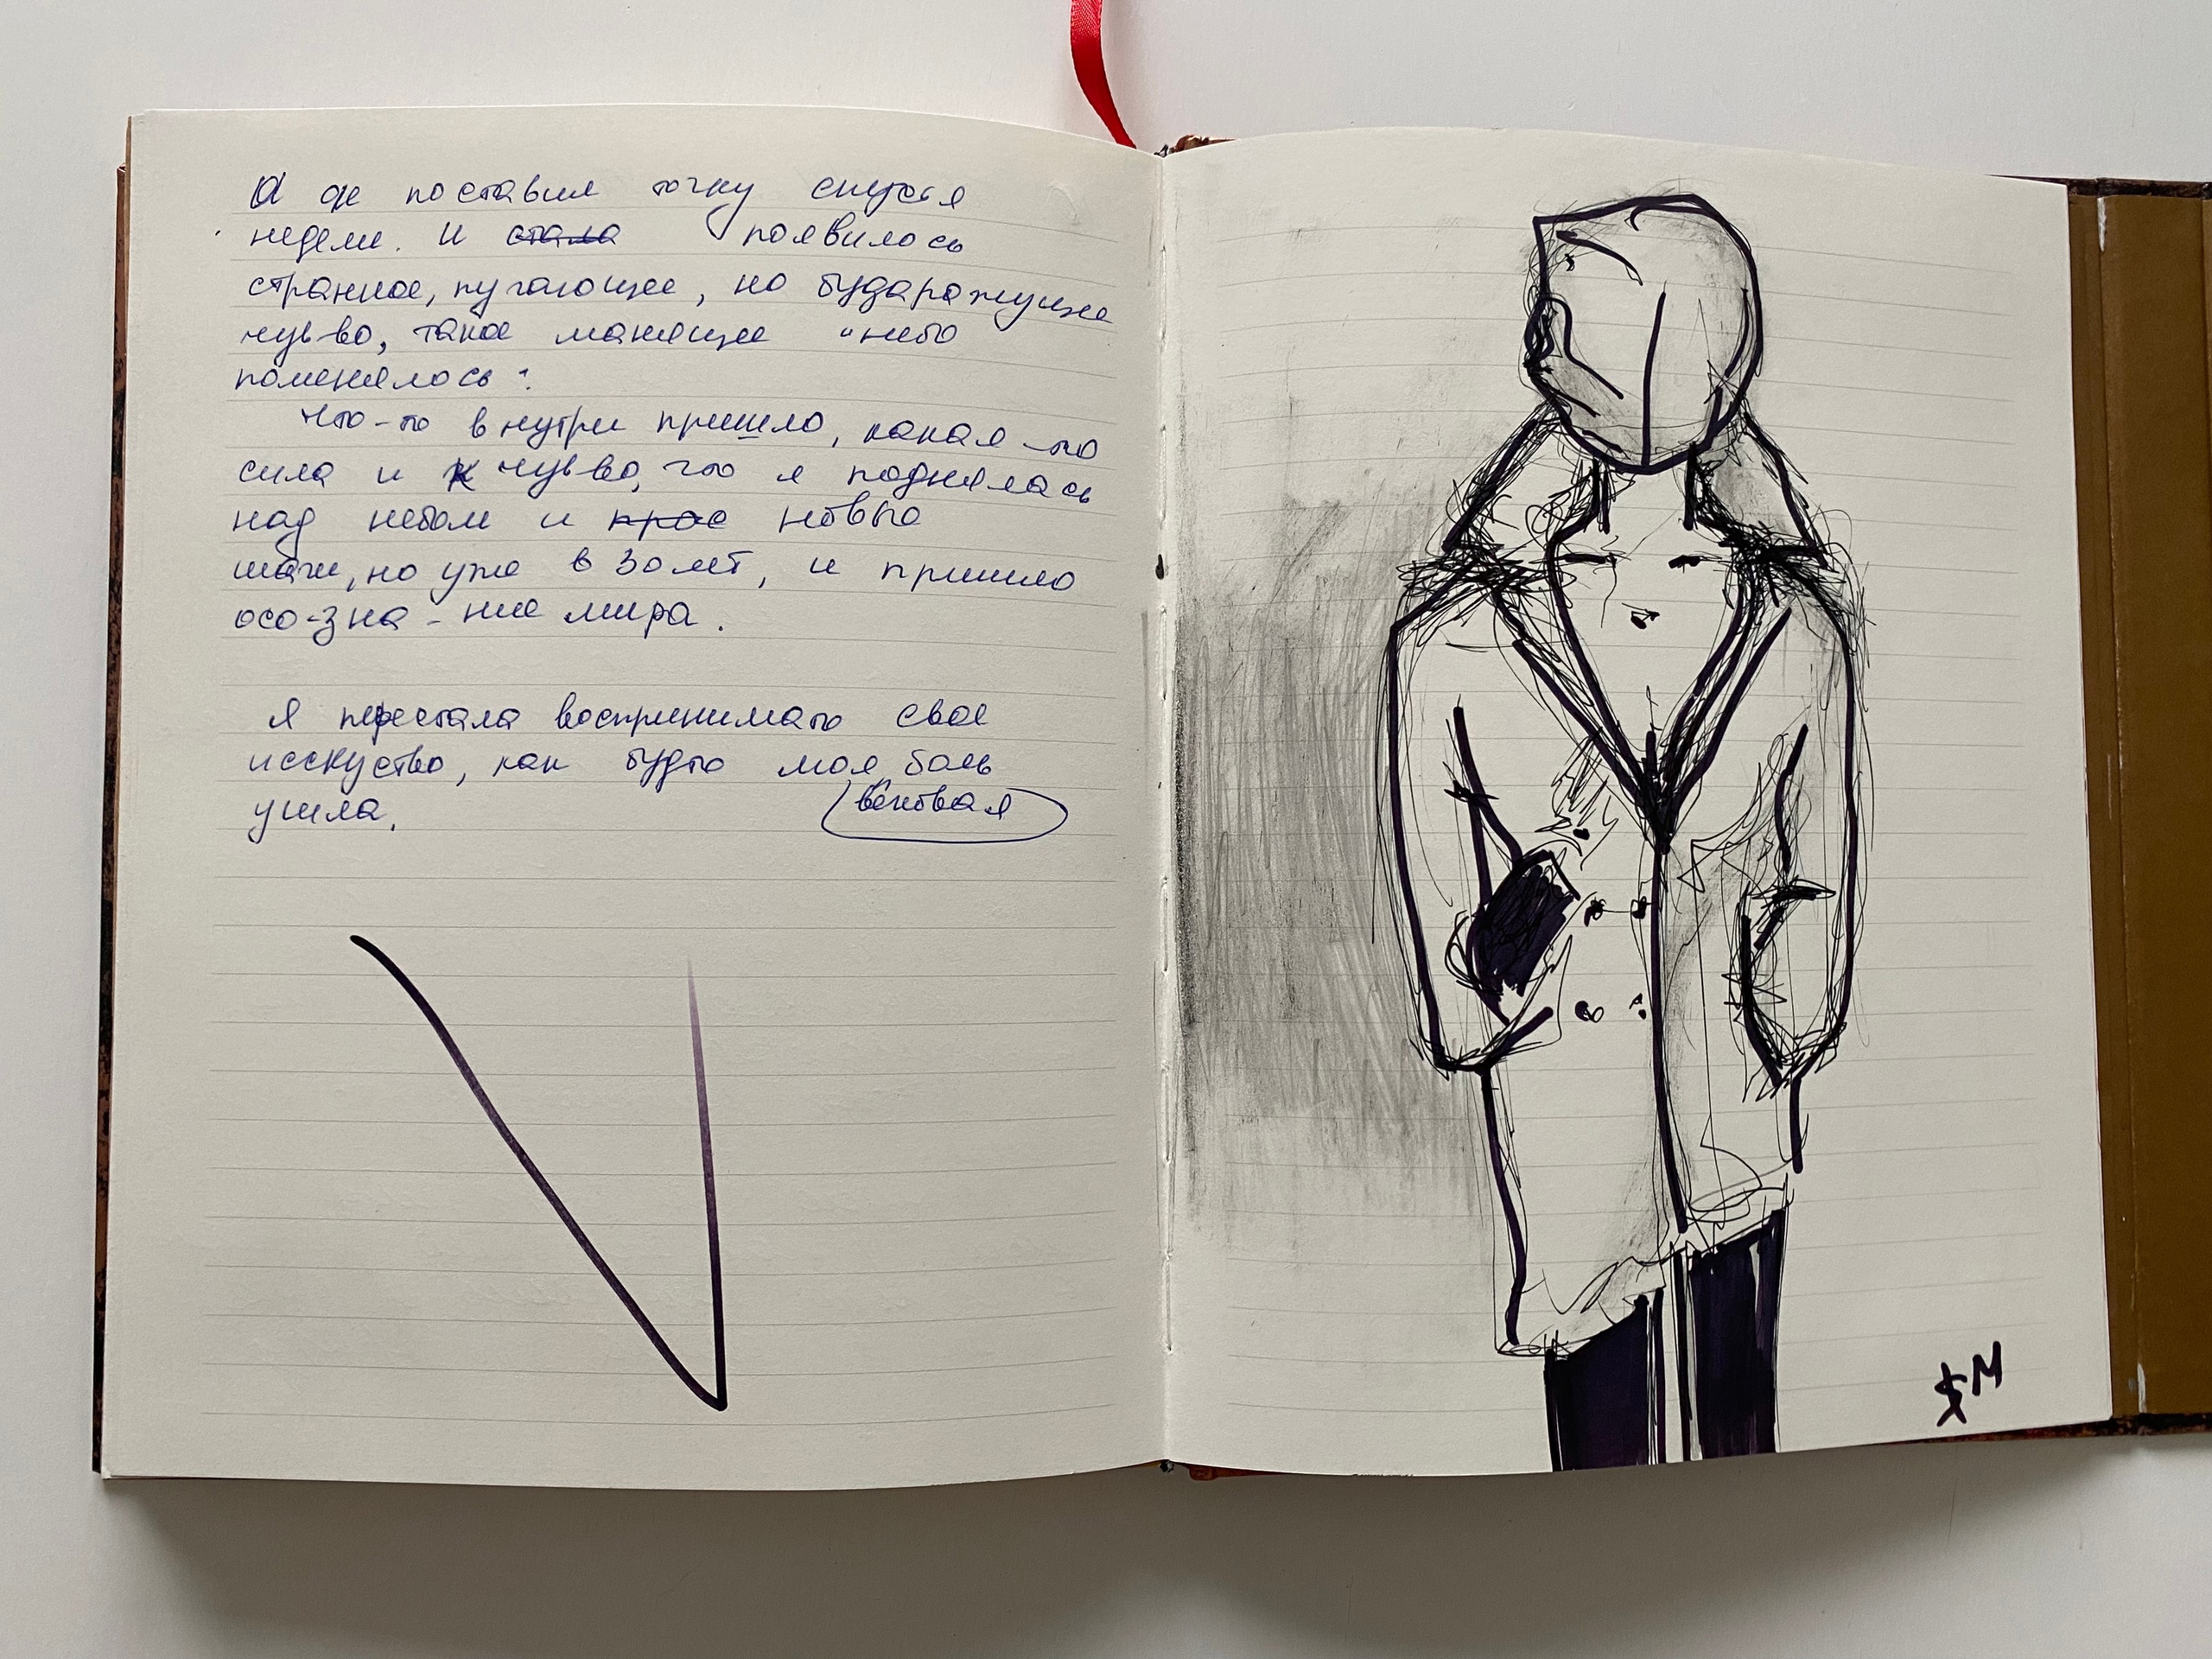 А он поставил точку спустя
недели. И стала появилось
странное, пугающее, но бударажущее
чув-во, такое манящее "небо
поменялось".
Что-то внутри пришло, какая-то
сила и чув-во, что я поднялась
над небом и новые
шаги, но уже в 30 лет, и пришло
осо-зна-ние мира.
Я перестала воспринимать свое
исскуство, как будто моя боль
вековая
ушла.
$M